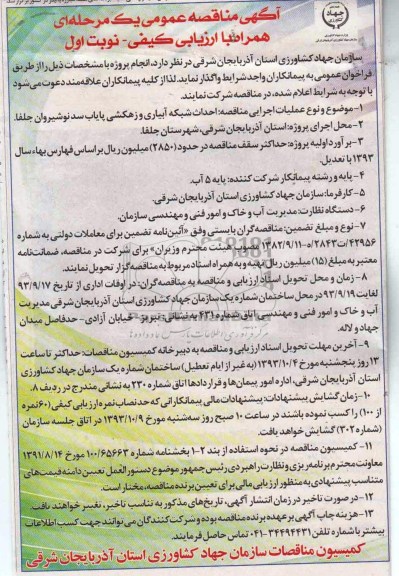 آگهی مناقصه عمومی یک مرحله‌ای
همراه با ارزیابی کیفی - نوبت اول
سازمان جهاد کشاورزی استان آذربایجان شرقی در نظر دارد، انجام پروژه با مشخصات ذیل را از طریق
فراخوان عمومی به پیمانکاران واجد شرایط واگذار نماید. لذا از کلیه پیمانکاران علاقه‌مند دعوت می‌شود
با توجه به شرایط اعلام شده، در مناقصه شرکت نمایند.
۱- موضوع و نوع عملیات اجرایی مناقصه: احداث شبکه آبیاری و زهکشی پایاب سد نوشیروان جلفا.
۲- محل اجرای پروژه: استان آذربایجان شرقی، شهرستان جلفا.
۳- برآورد اولیه پروژه: حداکثر سقف مناقصه در حدود (۲۸۵۰) میلیون ریال بر اساس فهارس بهاء سال
۱۳۹۳ با تعدیل.
۴- پایه و رشته پیمانکار شرکت کننده: پایه ۵ آب.
۵- کارفرما: سازمان جهاد کشاورزی استان آذربایجان شرقی.
۶- دستگاه نظارت: مدیریت آب و خاک و امور فنی و مهندسی سازمان.
۷- نوع و مبلغ تضمین: مناقصه‌گران بایستی وفق «آئین‌نامه تضمین برای معاملات دولتی به شماره
۴۲۹۵۶/ت۲۸۴۳ه-۱۳۸۲/۹/۱۱ هیئت محترم وزیران» برای شرکت در مناقصه، ضمانت‌نامه
معتبر به مبلغ (۱۵) میلیون ریال تهیه و به همراه اسناد مربوط به مناقصه‌گزار تحویل نمایند.
۸- زمان و محل تحویل اسناد ارزیابی و مناقصه به مناقصه‌گران: در اوقات اداری از تاریخ ۹۳/۹/۱۷
لغایت ۹۳/۹/۱۹ در محل ساختمان شماره یک سازمان جهاد کشاورزی استان آذربایجان شرقی مدیریت
آب و خاک و امور فنی و مهندسی اتاق شماره ۴۳۱ به نشانی: تبریز- خیابان آزادی- حدفاصل میدان
جهاد و لاله.
۹- آخرین مهلت تحویل اسناد ارزیابی و مناقصه به دبیرخانه کمیسیون مناقصات: حداکثر تا ساعت
۱۳ روز پنجشنبه مورخ ۱۳۹۳/۱۰/۴ (به غیر از ایام تعطیل) ساختمان شماره یک سازمان جهاد کشاورزی
استان آذربایجان شرقی، اداره امور پیمان‌ها و قراردادها اتاق شماره ۲۳۰ به نشانی مندرج در ردیف ۸.
۱۰- زمان گشایش پیشنهادات: پیشنهادات مالی پیمانکارانی که حد نصاب نمره ارزیابی کیفی (۶۰ نمره
از ۱۰۰) را کسب نموده باشند در ساعت ۱۰ صبح روز سه‌شنبه مورخ ۱۳۹۳/۱۰/۹ در اتاق جلسه سازمان
(شماره ۳۰۲) گشایش خواهد یافت.
۱۱- کمیسیون مناقصه در نحوه استفاده از بند ۲-۱ بخشنامه شماره ۱۰۰/۶۵۶۶۳ مورخ ۱۳۹۱/۸/۱۴
معاونت محترم برنامه‌ریزی و نظارت راهبردی رئیس جمهور موضوع دستورالعمل تعیین دامنه قیمت‌های
متناسب پیشنهادی به منظور ارزیابی مالی برای تعیین برنده مناقصه، مختار است.
۱۲- در صورت تاخیر در زمان انتشار آگهی، تاریخ‌های مذکور به تناسب تاخیر، تغییر خواهند یافت.
۱۳- هزینه چاپ آگهی بر عهده برنده مناقصه بوده و شرکت‌کنندگان می‌توانند جهت کسب اطلاعات
بیشتر با شماره تلفن ۳۴۴۹۴۴۳۱-۰۴۱ تماس حاصل فرمایند.
کمیسیون مناقصات سازمان جهاد کشاورزی استان آذربایجان شرقی